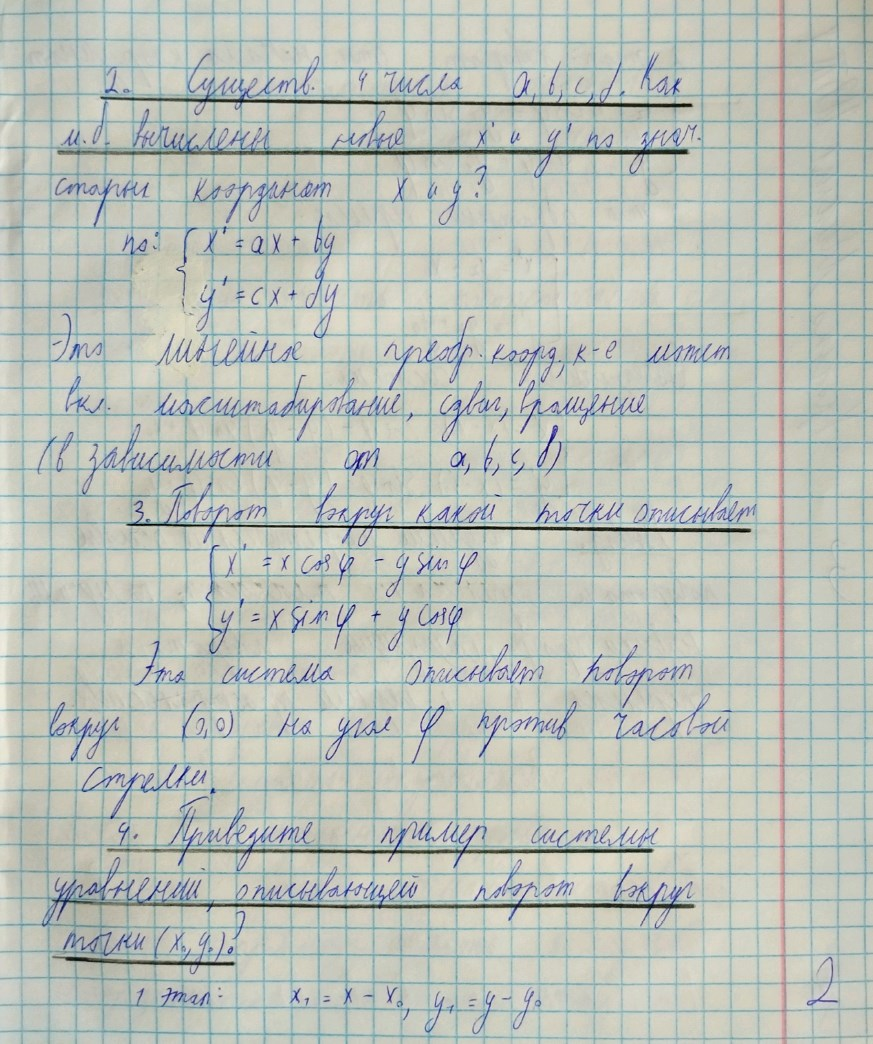 2. Существ. 4 числа a, b, c, d. Как
м.б. вычислены новые x' и y' по знач.
старых координат x и y?
по: { x' = ax + by
y' = cx + dy
Это линейное преобр. коорд, к-е может
вкл. масштабирование, сдвиг, вращение
(в зависимости от a, b, c, d)
3. Поворот вокруг какой точки описывает
{ x' = x cos φ - y sin φ
y' = x sin φ + y cos φ
Эта система описывает поворот
вокруг (0,0) на угол φ против часовой
стрелки.
4. Приведите пример системы
уравнений, описывающей поворот вокруг
точки (x₀, y₀)?
1 этап: x₁ = x - x₀, y₁ = y - y₀
2